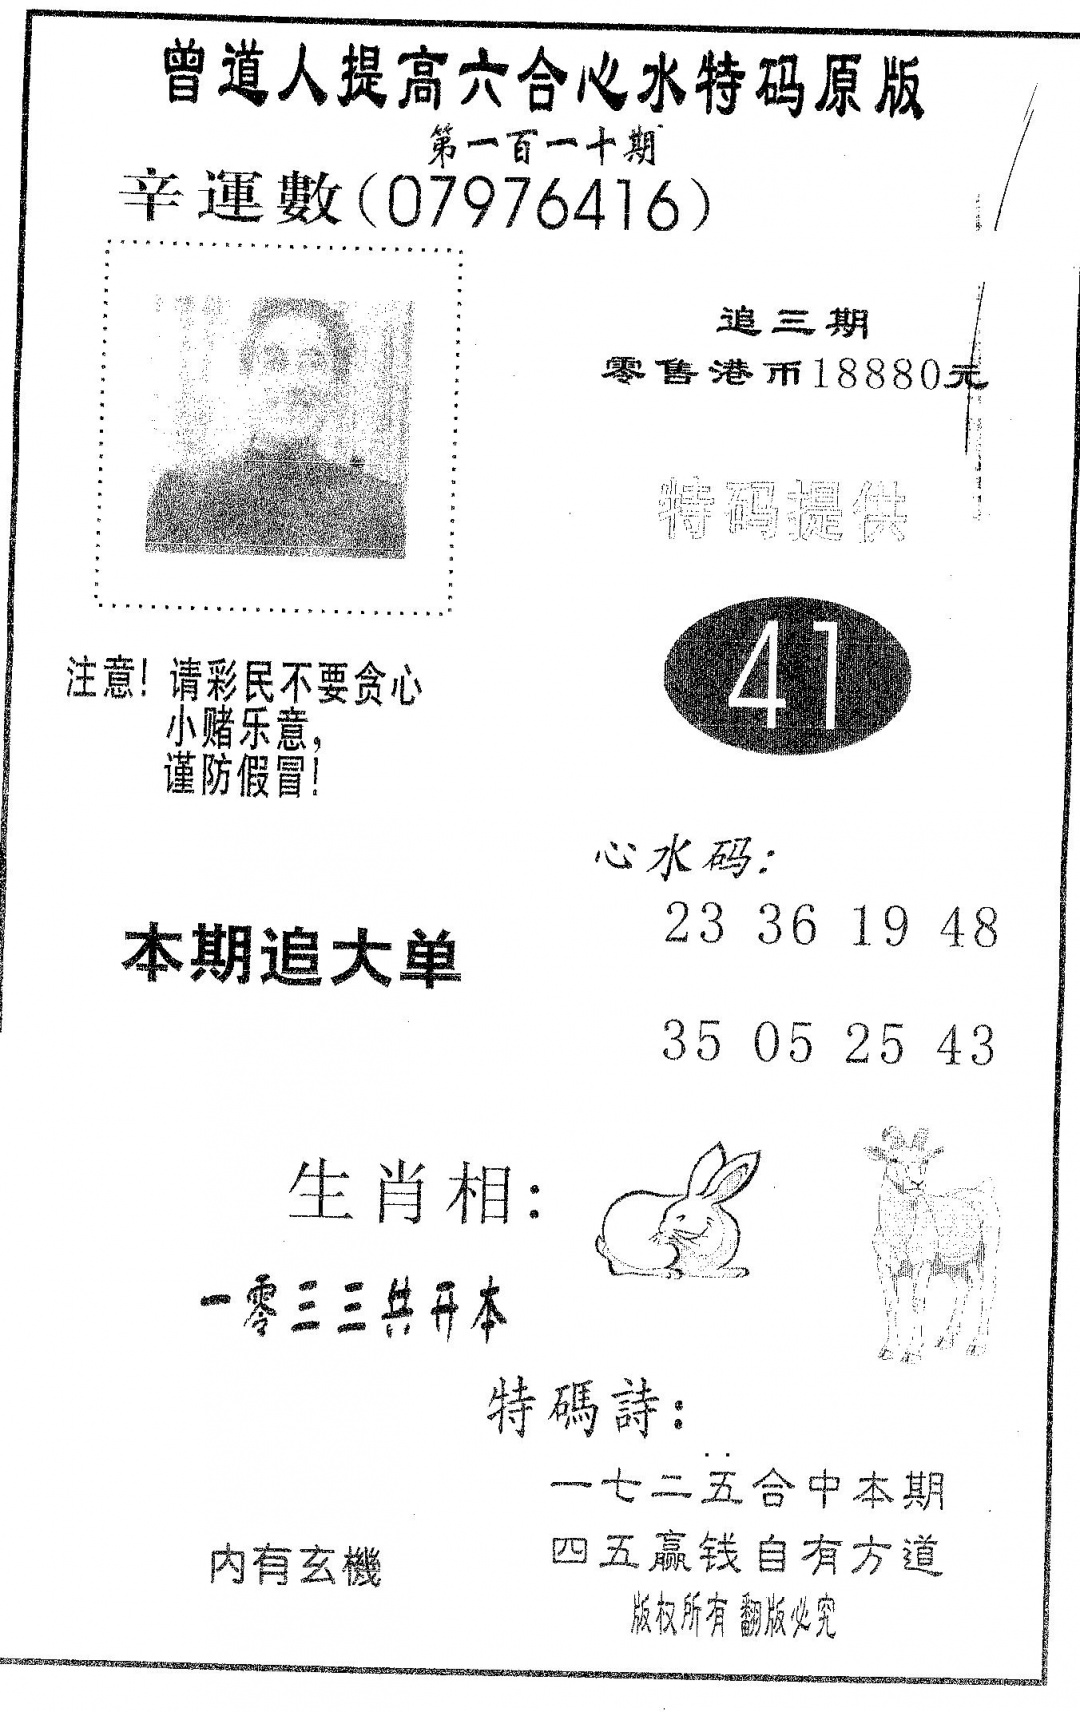 曾道人提高六合心水特码原版
第一百一十期
辛運數(07976416)
追三期
零售港币18880元
特码提供
41
注意!请彩民不要贪心
小赌乐意,
谨防假冒!
心水码:
23 36 19 48
本期追大单
35 05 25 43
生肖相:
一零三三共开本
特碼詩:
一七二五合中本期
四五赢钱自有方道
内有玄機
版权所有 翻版必究